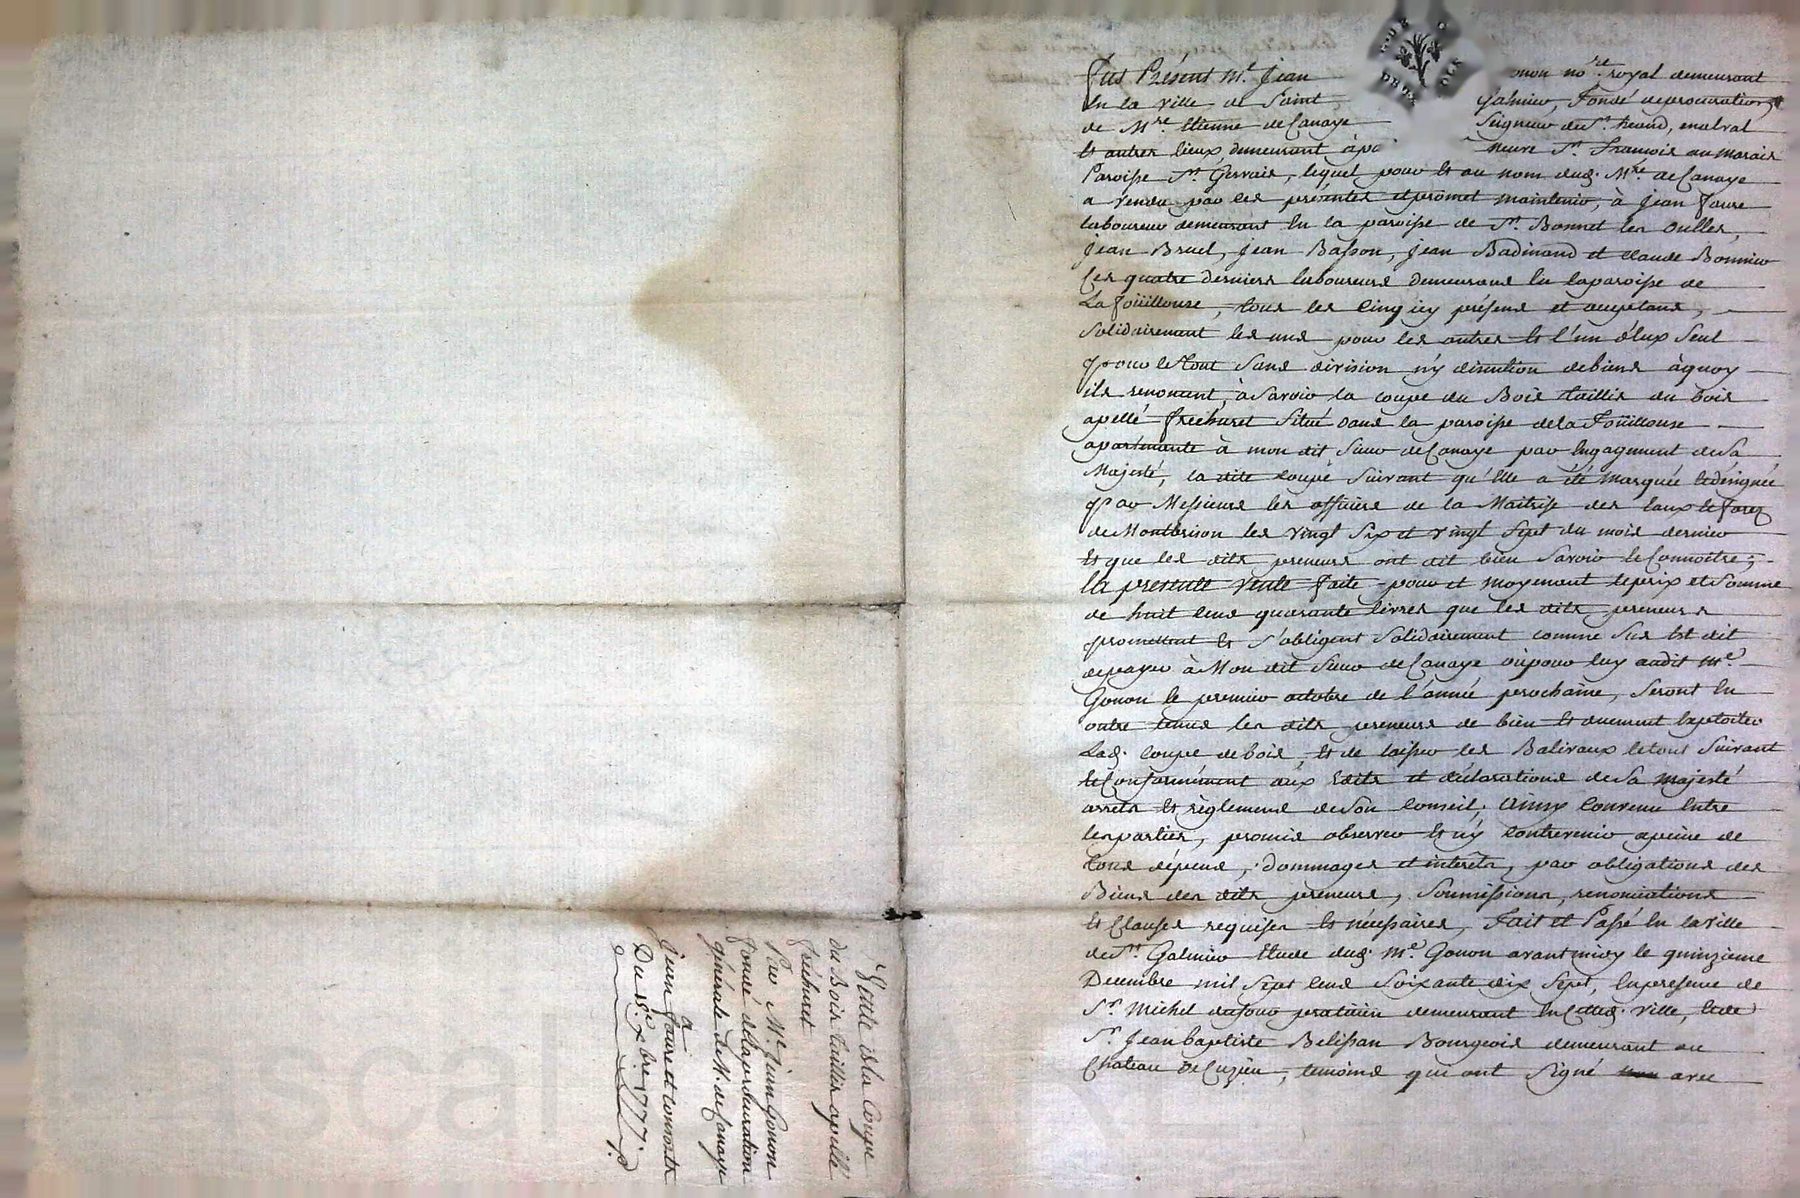 Fut Présent Me. Jean onon nore. royal demeurant
En la ville de Saint Galmier, Fondé deprocuration
de Mre. Etienne deCanaye Seigneur de St. heand,
Et autres lieux demeurant à neuve St. François au marais
Paroisse St. Gervais, lequel pour Et au nom dud. Mre. deCanaye
a vendu par ces présentes etpromet maintenir, à Jean faure
laboureur demeurant En la paroisse de St. Bonnet les Oulles,
Jean Bruel, Jean Basson, Jean Badinand et Claude Bonnier
Ces quatre derniers laboureurs demeurans En laparoisse de
La foüillouse, tous les Cinq icy présens et acceptans,
Solidairement les uns pour les autres Et l'un d'Eux Seul
pour leTout Sans division n'y discution debiens àquoy
ils renoncent, àSavoir la coupe du Bois taillis du bois
apellé frechuret Situé dans la paroisse dela Foüillouse
apartenante à mon dit Sieur deCanaye par Engagement deSa
Majesté, la dite coupe Suivant qu'Elle a été Marquée Etdésignée
par Messieurs les officiers de la Maitrise des Eaux et forez
deMontbrison les vingt Six et vingt Sept du mois dernier
Et que les dits preneurs ont dit bien Savoir et Connoitre;
la presente vente faite pour et moyenant leprix etSomme
de huit Cens quarante livres que les dits preneurs
promettent Et s'obligent Solidairement comme Sus Est dit
depayer à Mon dit Sieur deCanaye oupour luy audit Me.
Gonon le premier octobre de l'année prochaine, Seront En
outre tenus les dits preneurs de bien Et duement Exploiter
Lad. Coupe debois, Et de laisser les Baliveaux letout Suivant
EtConformément aux Edits et déclarations deSa Majesté
arrets Et règlemens deSon Conseil, Ainsy Convenu Entre
lesparties, promis observer Et n'y Contrevenir apeine de
tous dépens, Dommages et intérêts, par obligations des
Biens des dits preneurs, Soumissions, renonciations
Et Clauses requises Et nécessaires, Fait et Passé En laville
deSt. Galmier Etude dud. Me. Gonon avantmidy le quinzieme
Decembre mil Sept Cens Soixante dix Sept, Enpresence de
Sr. Michel dufour praticien demeurant EnCetted. ville, Etde
Sr. Jean baptiste Belissan Bourgeois demeurant au
Chateau de Cuzieu, témoins qui ont Signé avec
Vente dela Coupe
du Bois taillis apellé
fréchuret
Par Me. Jean Gonon
fondé delaprocuration
générale de M. de Canaye
a
Jean faure et Consorts
Du 15e. Xbre. 1777.